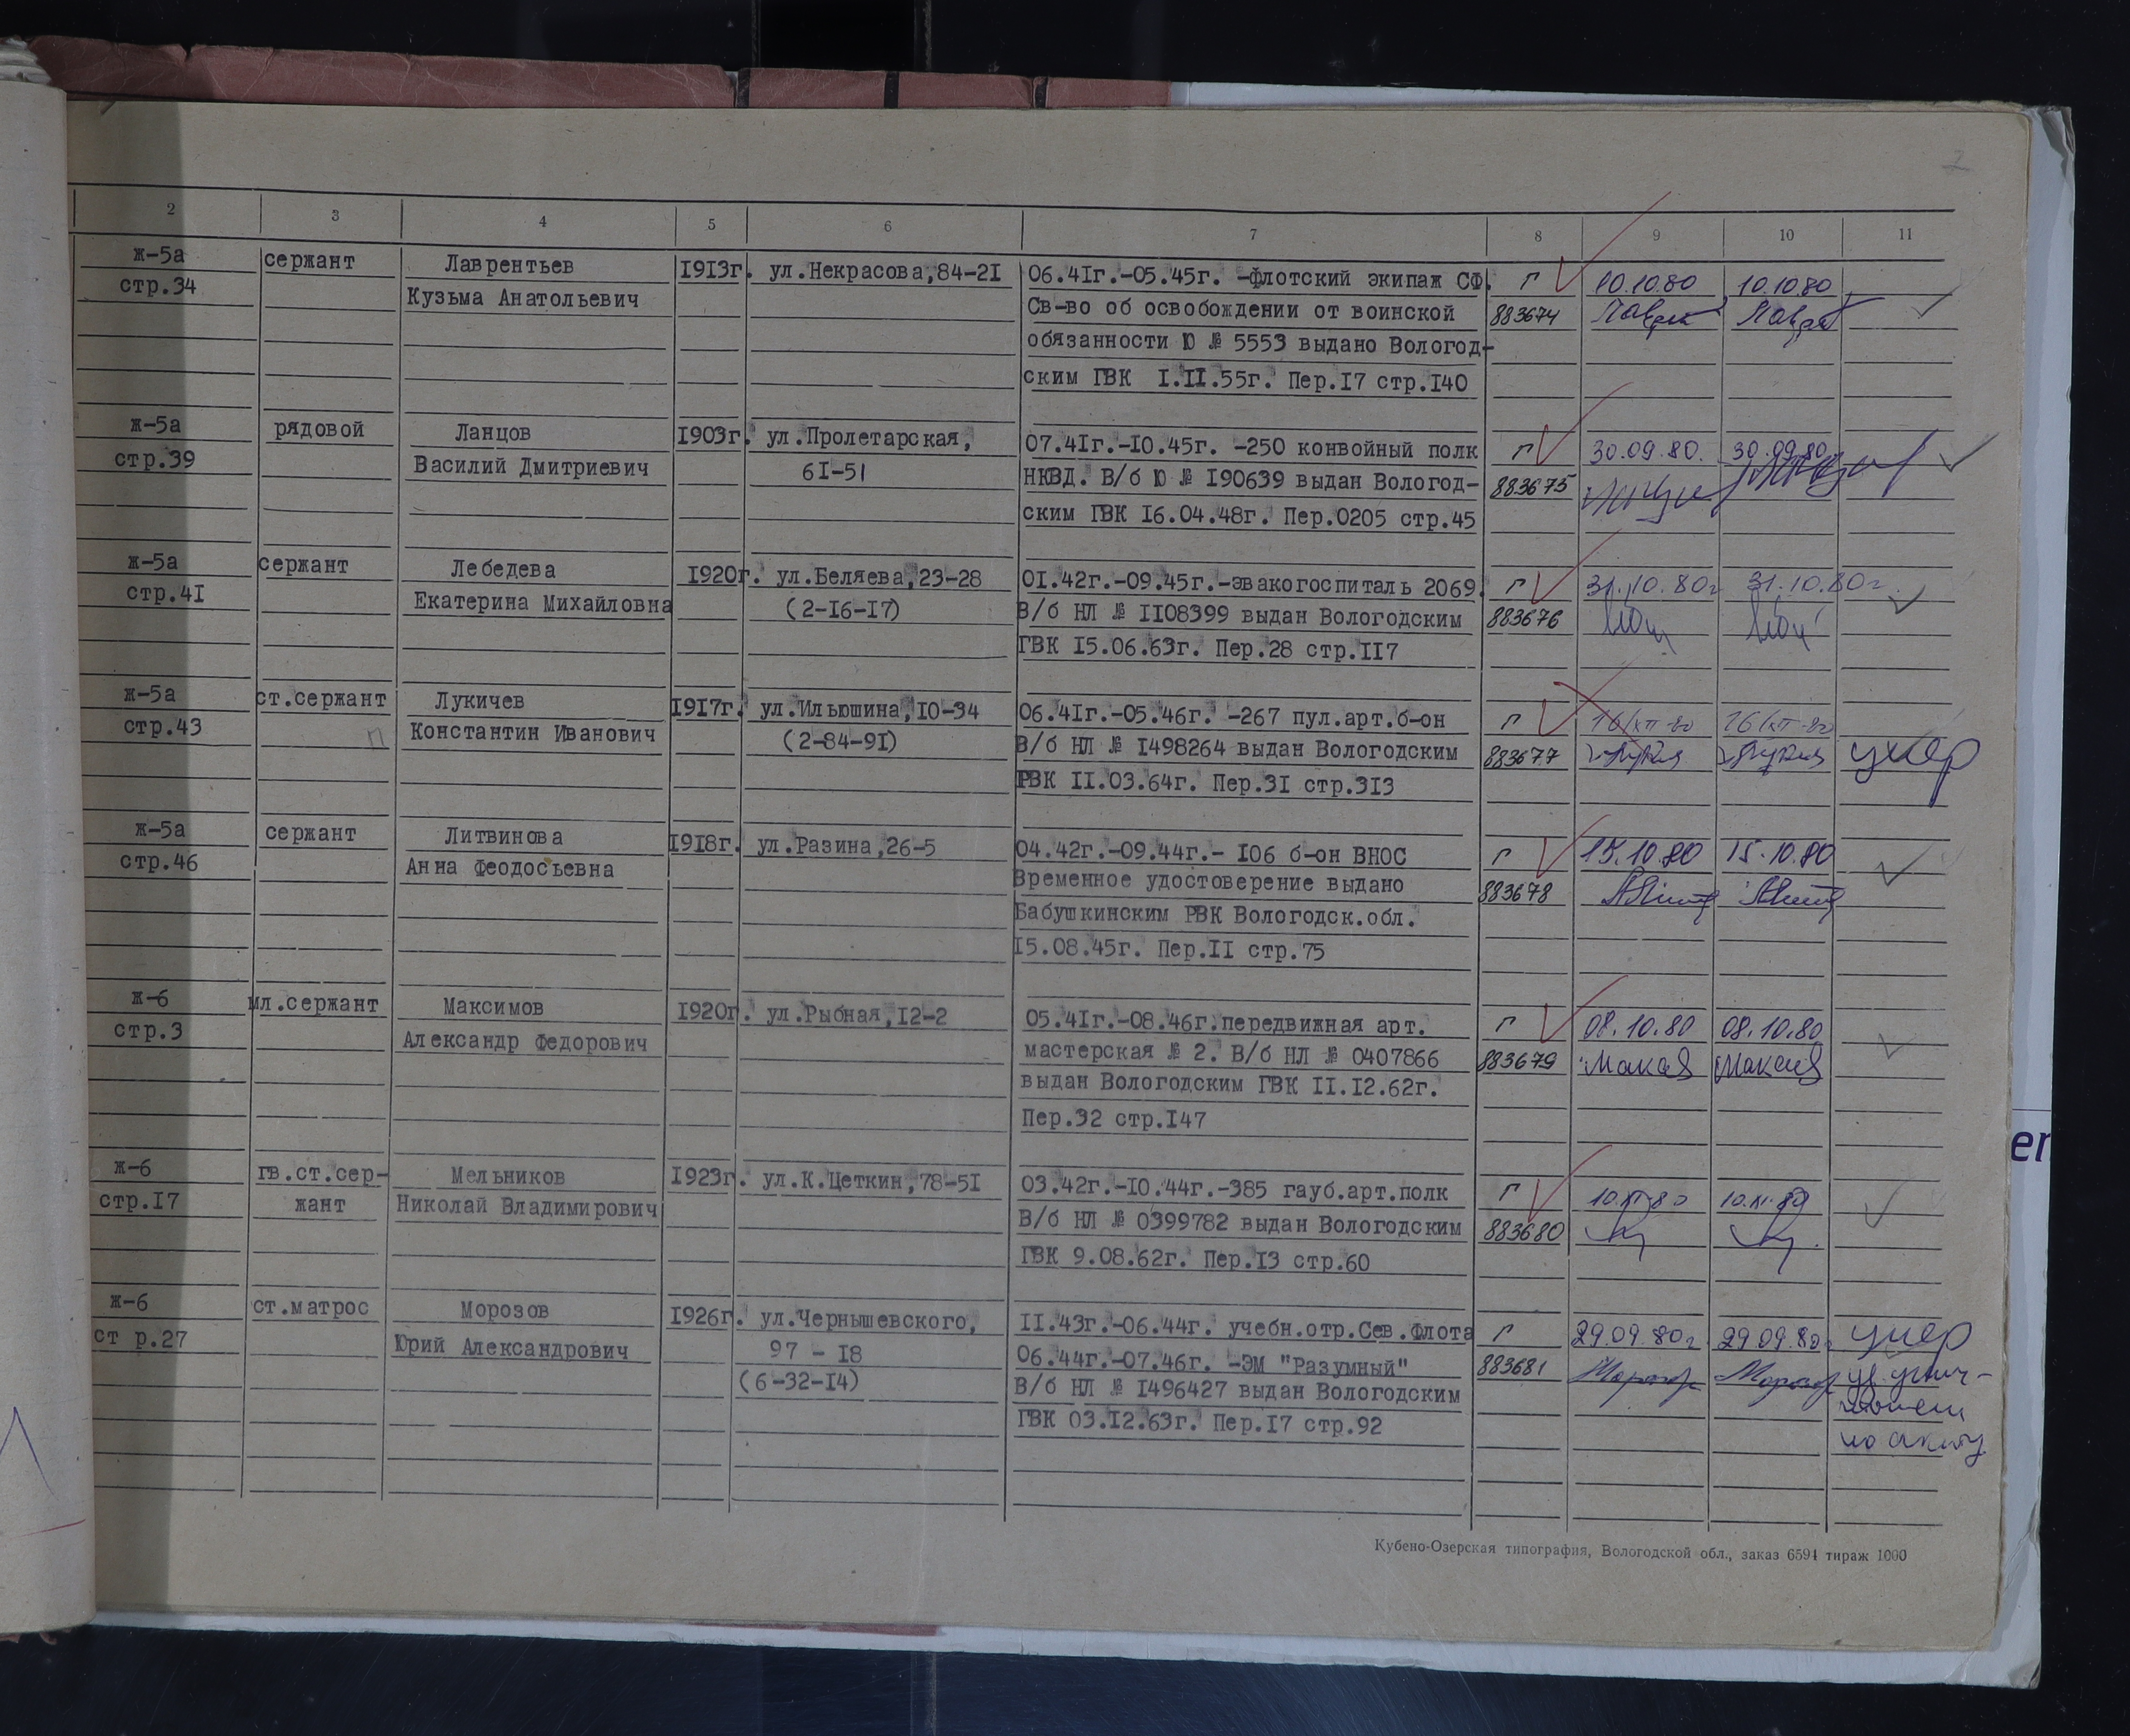 2
2 3 4 5 6 7 8 9 10 11
ж-5а сержант Лаврентьев 1913г. ул.Некрасова,84-21 06.41г.-05.45г. -флотский экипаж СФ. Г 10.10.80 10.10.80
стр.34 Кузьма Анатольевич Св-во об освобождении от воинской 883674
обязанности Ю № 5553 выдано Вологод-
ским ГВК 1.11.55г. Пер.17 стр.140
ж-5а рядовой Ланцов 1903г. ул.Пролетарская, 07.41г.-10.45г. -250 конвойный полк Г 30.09.80. 30.09.80
стр.39 Василий Дмитриевич 61-51 НКВД. В/б Ю № 190639 выдан Вологод- 883675
ским ГВК 16.04.48г. Пер.0205 стр.45
ж-5а сержант Лебедева 1920г. ул.Беляева,23-28 01.42г.-09.45г.-эвакогоспиталь 2069. Г 31.10.80г 31.10.80г.
стр.41 Екатерина Михайловна (2-16-17) В/б НЛ № 1108399 выдан Вологодским 883676
ГВК 15.06.63г. Пер.28 стр.117
ж-5а ст.сержант Лукичев 1917г. ул.Ильюшина,10-34 06.41г.-05.46г. -267 пул.арт.б-он Г
стр.43 п Константин Иванович (2-84-91) В/б НЛ № 1498264 выдан Вологодским 883677 умер
РВК 11.03.64г. Пер.31 стр.313
ж-5а сержант Литвинова 1918г. ул.Разина,26-5 04.42г.-09.44г.- 106 б-он ВНОС Г 15.10.80 15.10.80
стр.46 Анна Феодосьевна Временное удостоверение выдано 883678
Бабушкинским РВК Вологодск.обл.
15.08.45г. Пер.11 стр.75
ж-6 мл.сержант Максимов 1920г. ул.Рыбная,12-2 05.41г.-08.46г.передвижная арт. Г 08.10.80 08.10.80
стр.3 Александр Федорович мастерская № 2. В/б НЛ № 0407866 883679
выдан Вологодским ГВК 11.12.62г.
Пер.32 стр.147
ж-6 гв.ст.сер- Мельников 1923г. ул.К.Цеткин,78-51 03.42г.-10.44г.-385 гауб.арт.полк Г 10.XI.80 10.XI.80
стр.17 жант Николай Владимирович В/б НЛ № 0399782 выдан Вологодским 883680
ГВК 9.08.62г. Пер.13 стр.60
ж-6 ст.матрос Морозов 1926г. ул.Чернышевского, 11.43г.-06.44г. учебн.отр.Сев.Флота Г 29.09.80г 29.09.80г умер
ст р.27 Юрий Александрович 97 - 18 06.44г.-07.46г. -ЭМ "Разумный" 883681 уд. унич-
(6-32-14) В/б НЛ № 1496427 выдан Вологодским тожен
ГВК 03.12.63г. Пер.17 стр.92 по акту
Кубено-Озерская типография, Вологодской обл., заказ 6594 тираж 1000